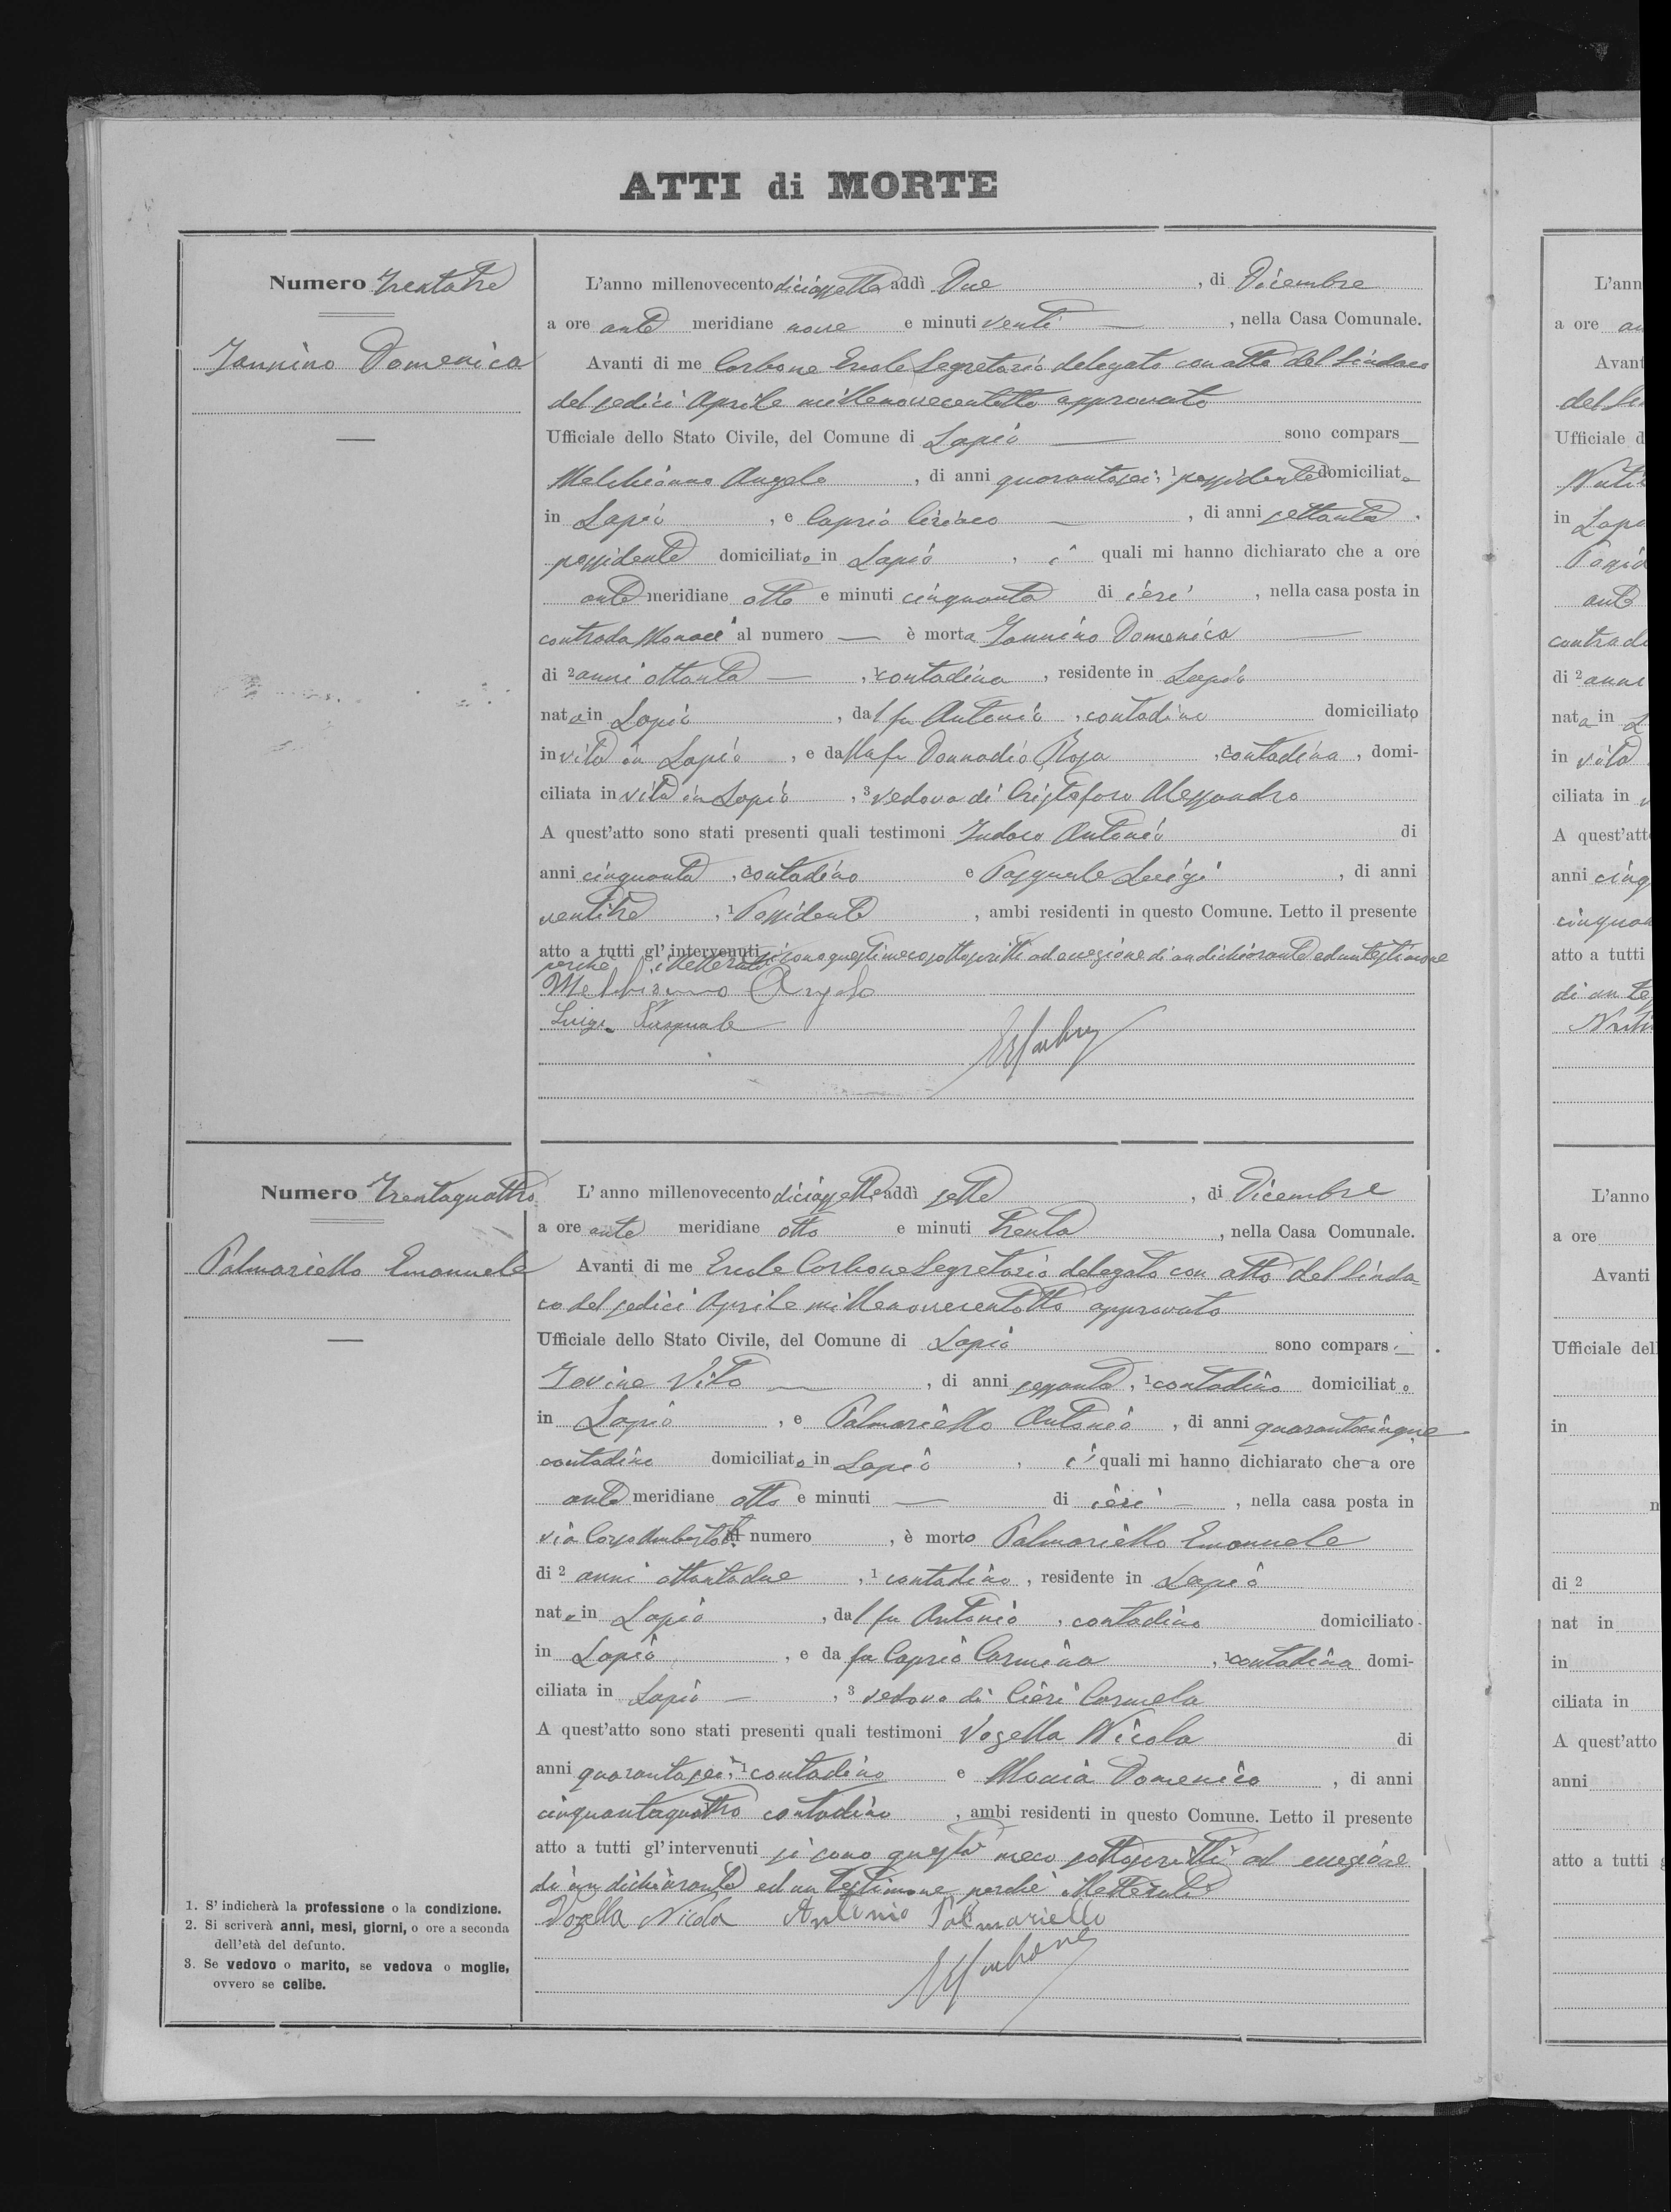 ATTI di MORTE
Numero Trentatre
Iannino Domenica
L'anno millenovecento diciassette addì Due, di Dicembre
a ore ante meridiane nove e minuti venti, nella Casa Comunale.
Avanti di me Carbone Ercole Segretario delegato con atto del Sindaco
del sedici Aprile millenovecentotto approvato
Ufficiale dello Stato Civile, del Comune di Lapio sono compars
Melchionno Angelo, di anni quarantasei, 1 possidente domiciliato
in Lapio, e Caprio Ciriaco, di anni settanta
possidente domiciliato in Lapio, i quali mi hanno dichiarato che a ore
ante meridiane otto e minuti cinquanta di ieri, nella casa posta in
contrada al numero — è morta Iannino Domenica
di 2 anni ottanta, 1 contadina, residente in Lapio
nata in Lapio, dal fu Antonio, contadino domiciliato
in vita in Lapio, e dalla fu Donnadio Rosa, contadina, domi-
ciliata in vita in Lapio, 3 vedova di Cristofaro Alessandro
A quest'atto sono stati presenti quali testimoni Antonio di
anni cinquanta, contadino e Pasquale Luigi, di anni
ventitre, 1 Possidente, ambi residenti in questo Comune. Letto il presente
atto a tutti gl'intervenuti si sono questi meco sottoscritti ad eccezione di un dichiarante ed un testimone
perché illetterati
Melchionno Angelo
Luigi Pasquale
Numero Trentaquattro
Palmariello Emanuele
L'anno millenovecento diciassette addì sette, di Dicembre
a ore ante meridiane otto e minuti trenta, nella Casa Comunale.
Avanti di me Ercole Carbone Segretario delegato con atto del Sinda-
co del sedici Aprile millenovecentotto approvato
Ufficiale dello Stato Civile, del Comune di Lapio sono comparsi
Iovine Vito, di anni sessanta, 1 contadino domiciliato
in Lapio, e Palmariello Antonio, di anni quarantacinque
contadino domiciliato in Lapio, i quali mi hanno dichiarato che a ore
ante meridiane otto e minuti — di ieri, nella casa posta in
via Corso Umberto al numero, è morto Palmariello Emanuele
di 2 anni ottantadue, 1 contadino, residente in Lapio
nato in Lapio, dal fu Antonio, contadino domiciliato
in Lapio, e da fu Caprio Carmina, contadina domi-
ciliata in Lapio, 3 vedovo di Cieri Carmela
A quest'atto sono stati presenti quali testimoni Vozella Nicola di
anni quarantasei, 1 contadino e Domenico, di anni
cinquantaquattro contadino, ambi residenti in questo Comune. Letto il presente
atto a tutti gl'intervenuti si sono questi meco sottoscritti ad eccezione
di un dichiarante ed un testimone perché illetterati
Vozella Nicola Antonio Palmariello
1. S'indicherà la professione o la condizione.
2. Si scriverà anni, mesi, giorni, o ore a seconda
dell'età del defunto.
3. Se vedovo o marito, se vedova o moglie,
ovvero se celibe.
L'ann
a ore
Avant
Ufficiale d
in
di 2 anni
nata in
in vita
ciliata in
A quest'atto
anni
atto a tutti
L'anno
a ore
Avanti
Ufficiale del
in
di 2
nat in
in
ciliata in
A quest'atto
anni
atto a tutti